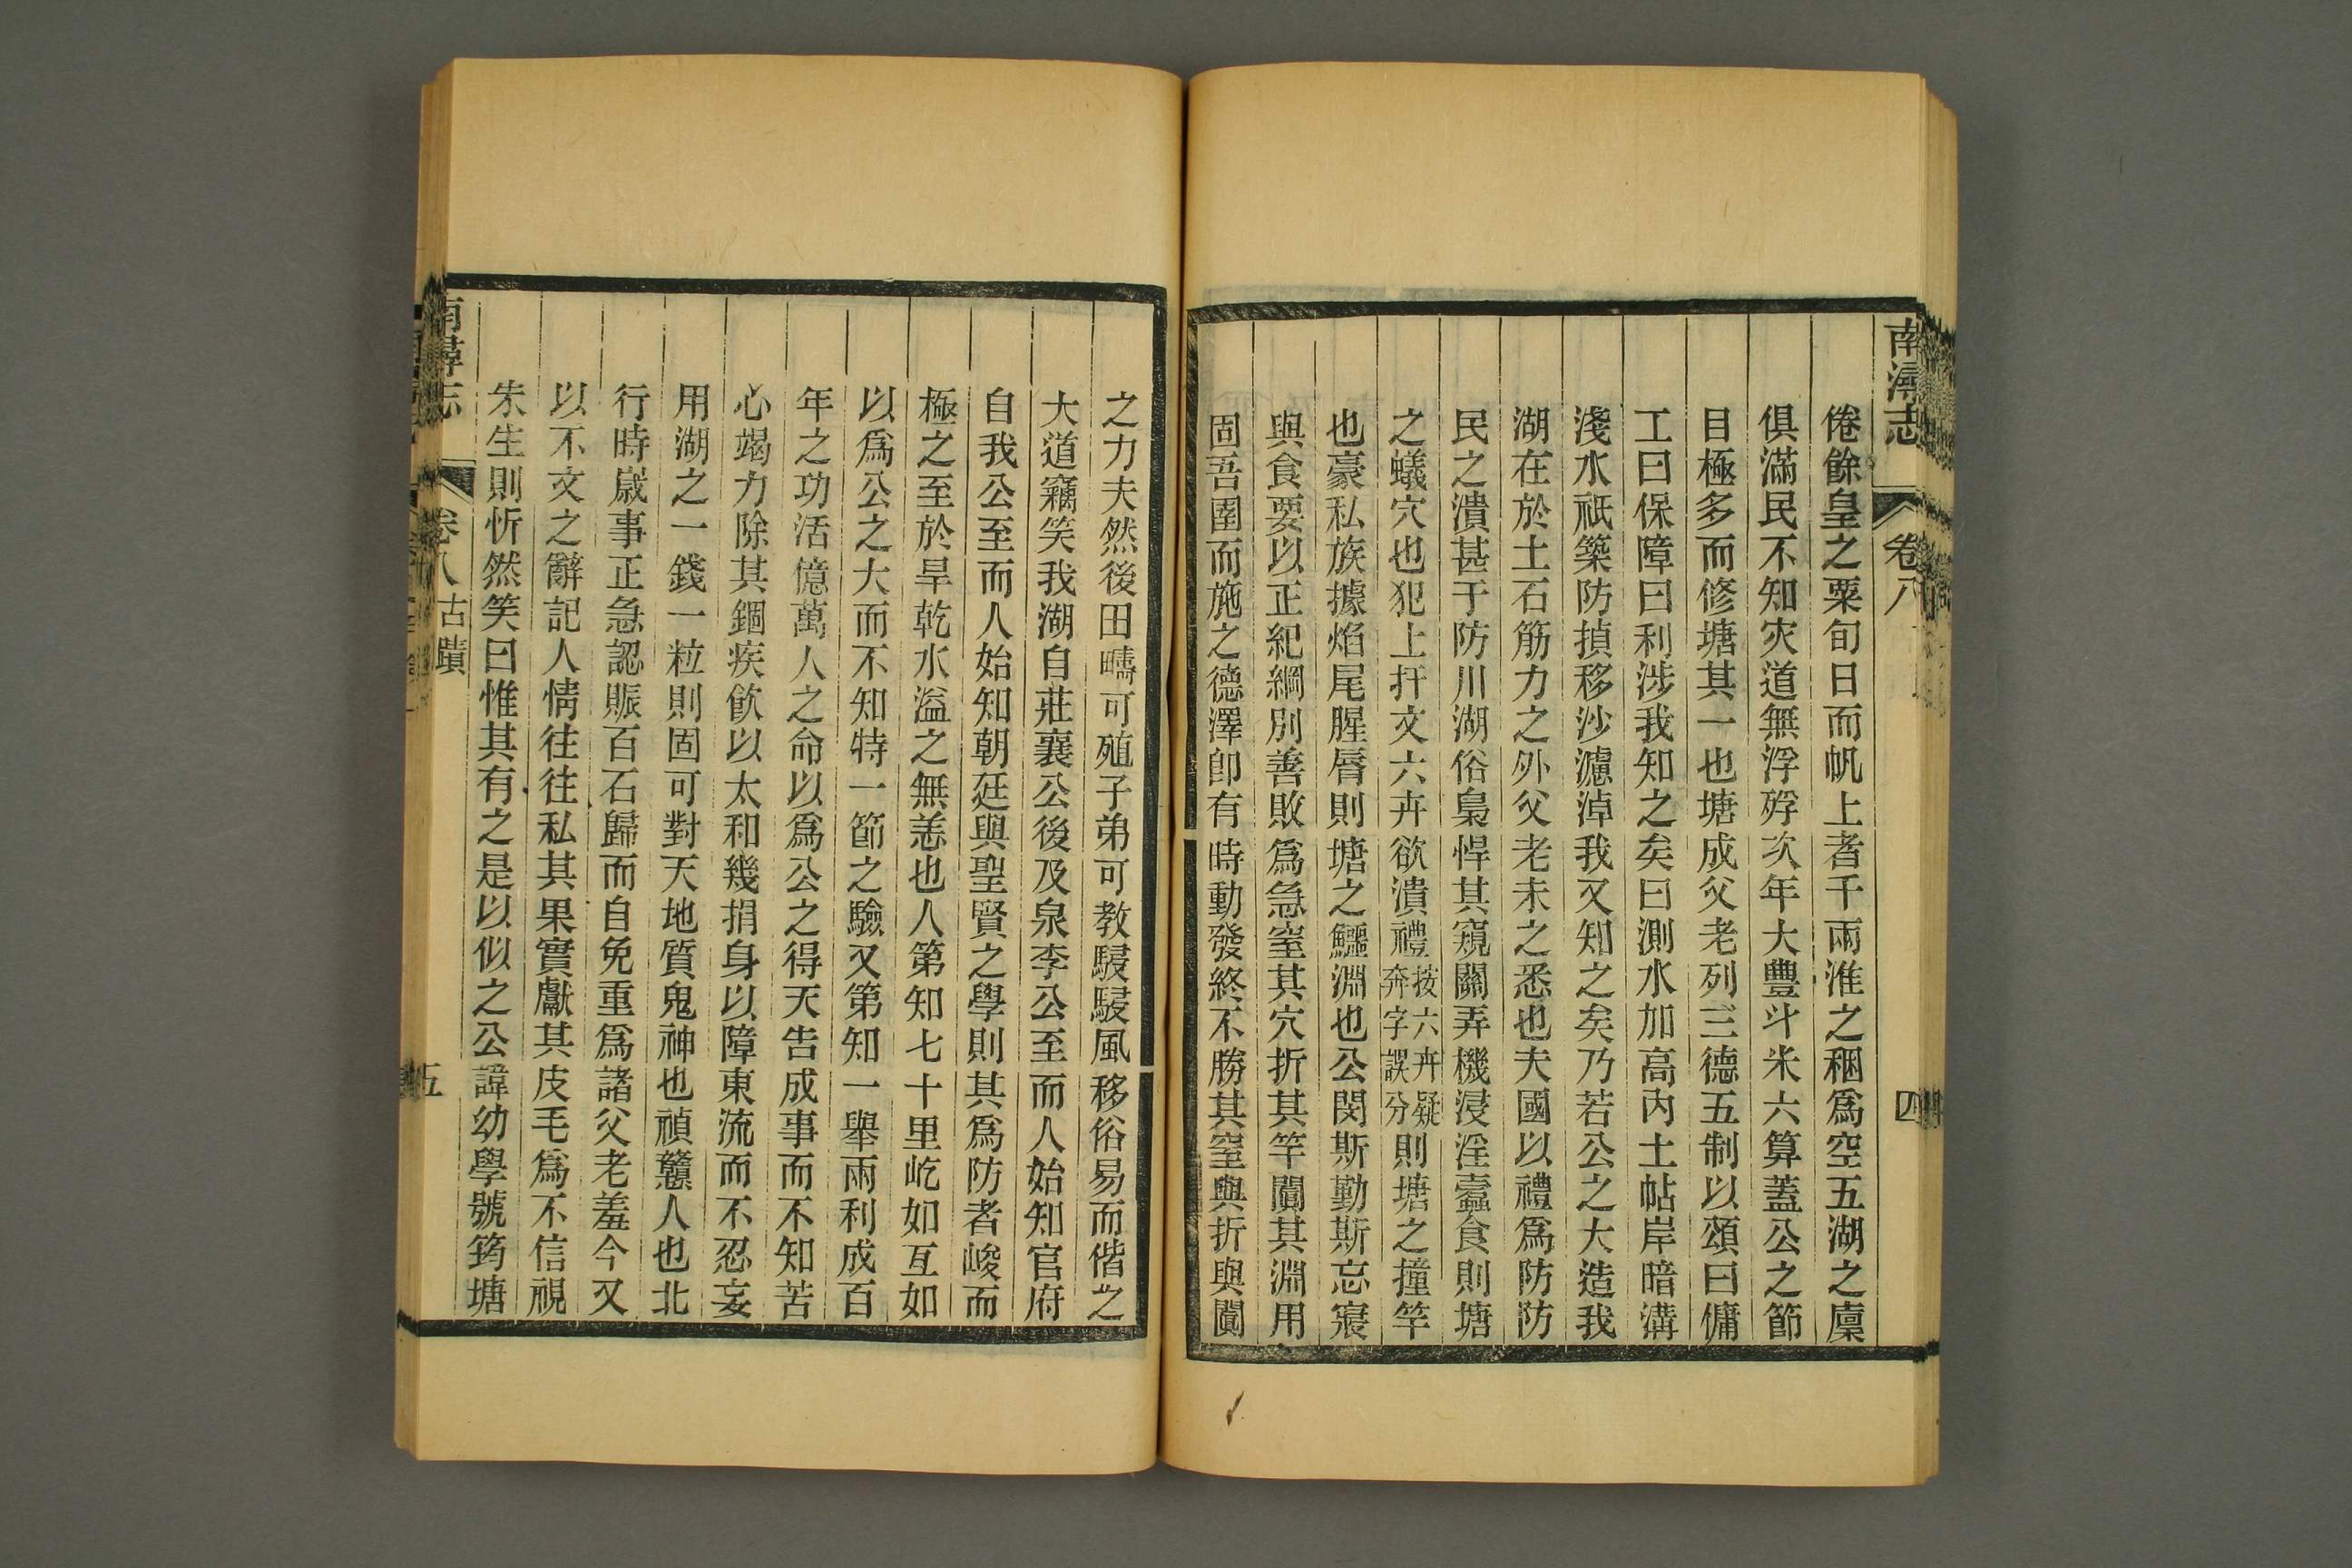 南潯志
卷八
四
倦餘皇之粟旬日而帆上者千兩淮之稇爲空五湖之廩
俱滿民不知灾道無浮殍次年大豐斗米六算蓋公之節
目極多而修塘其一也塘成父老列三德五制以頌曰傭
工曰保障曰利涉我知之矣曰測水加高內土帖岸暗溝
淺水祇築防揁移沙濾淖我又知之矣乃若公之大造我
湖在於土石筋力之外父老未之悉也夫國以禮爲防防
民之潰甚于防川湖俗梟悍其窺關弄機浸淫蠹食則塘
之蟻穴也犯上扞文六卉欲潰禮按六卉疑奔字誤分則塘之撞竿
也豪私族據焰尾腥脣則塘之鱷淵也公閔斯勤斯忘寢
與食要以正紀綱別善敗爲急窒其穴折其竿闐其淵用
固吾圉而施之德澤卽有時動發終不勝其窒與折與闐
之力夫然後田疇可殖子弟可教駸駸風移俗易而偕之
大道竊笑我湖自莊襄公後及泉李公至而人始知官府
自我公至而人始知朝廷與聖賢之學則其爲防者峻而
極之至於旱乾水溢之無恙也人第知七十里屹如亙如
以爲公之大而不知特一節之驗又第知一舉兩利成百
年之功活億萬人之命以爲公之得天告成事而不知苦
心竭力除其錮疾飮以太和幾捐身以障東流而不忍妄
用湖之一錢一粒則固可對天地質鬼神也禎戇人也北
行時歲事正急認賑百石歸而自免重爲諸父老羞今又
以不文之辭記人情往往私其果實獻其皮毛爲不信視
朱生則忻然笑曰惟其有之是以似之公諱幼學號筠塘
南潯志
卷八 古蹟
五